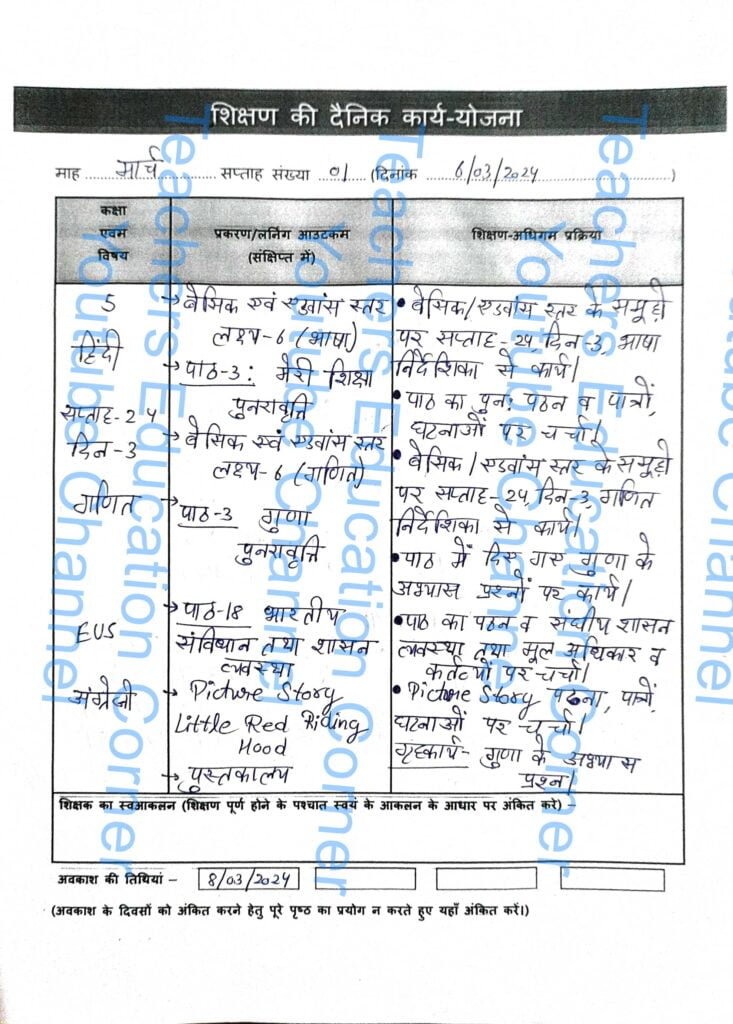 शिक्षण की दैनिक कार्य-योजना
माह मार्च सप्ताह संख्या 01 (दिनांक 6/03/2024)
कक्षा
एवम
विषय
प्रकरण/लर्निंग आउटकम
(संक्षिप्त में)
शिक्षण-अधिगम प्रक्रिया
5
हिंदी
सप्ताह-24
दिन-3
गणित
EUS
अंग्रेजी
→ बेसिक एवं एडवांस स्तर
लक्ष्य-6 (भाषा)
→ पाठ-3: मेरी शिक्षा
पुनरावृत्ति
→ बेसिक एवं एडवांस स्तर
लक्ष्य-6 (गणित)
→ पाठ-3 गुणा
पुनरावृत्ति
→ पाठ-18 भारतीय
संविधान तथा शासन
व्यवस्था
→ Picture Story
Little Red Riding
Hood
→ पुस्तकालय
• बेसिक/एडवांस स्तर के समूहो
पर सप्ताह-24, दिन-3, भाषा
निर्देशिका से कार्य।
• पाठ का पुन: पठन व पात्रों,
घटनाओं पर चर्चा।
• बेसिक/एडवांस स्तर के समूहो
पर सप्ताह-24, दिन-3, गणित
निर्देशिका से कार्य।
• पाठ में दिए गए गुणा के
अभ्यास प्रश्नों पर कार्य।
• पाठ का पठन व संघीय शासन
व्यवस्था तथा मूल अधिकार व
कर्तव्यों पर चर्चा।
• Picture Story पढना, पात्रों,
घटनाओं पर चर्चा।
गृहकार्य- गुणा के अभ्यास
प्रश्न।
शिक्षक का स्वआकलन (शिक्षण पूर्ण होने के पश्चात स्वयं के आकलन के आधार पर अंकित करे) –
अवकाश की तिथियां – 8/03/2024
(अवकाश के दिवसों को अंकित करने हेतु पूरे पृष्ठ का प्रयोग न करते हुए यहाँ अंकित करें।)
Teachers Education Corner
Youtube Channel
Teachers Education Corner
Youtube Channel
Teachers Education Corner
Youtube Channel